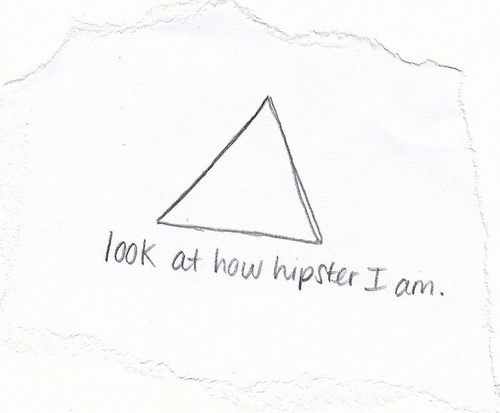 look at how hipster I am.